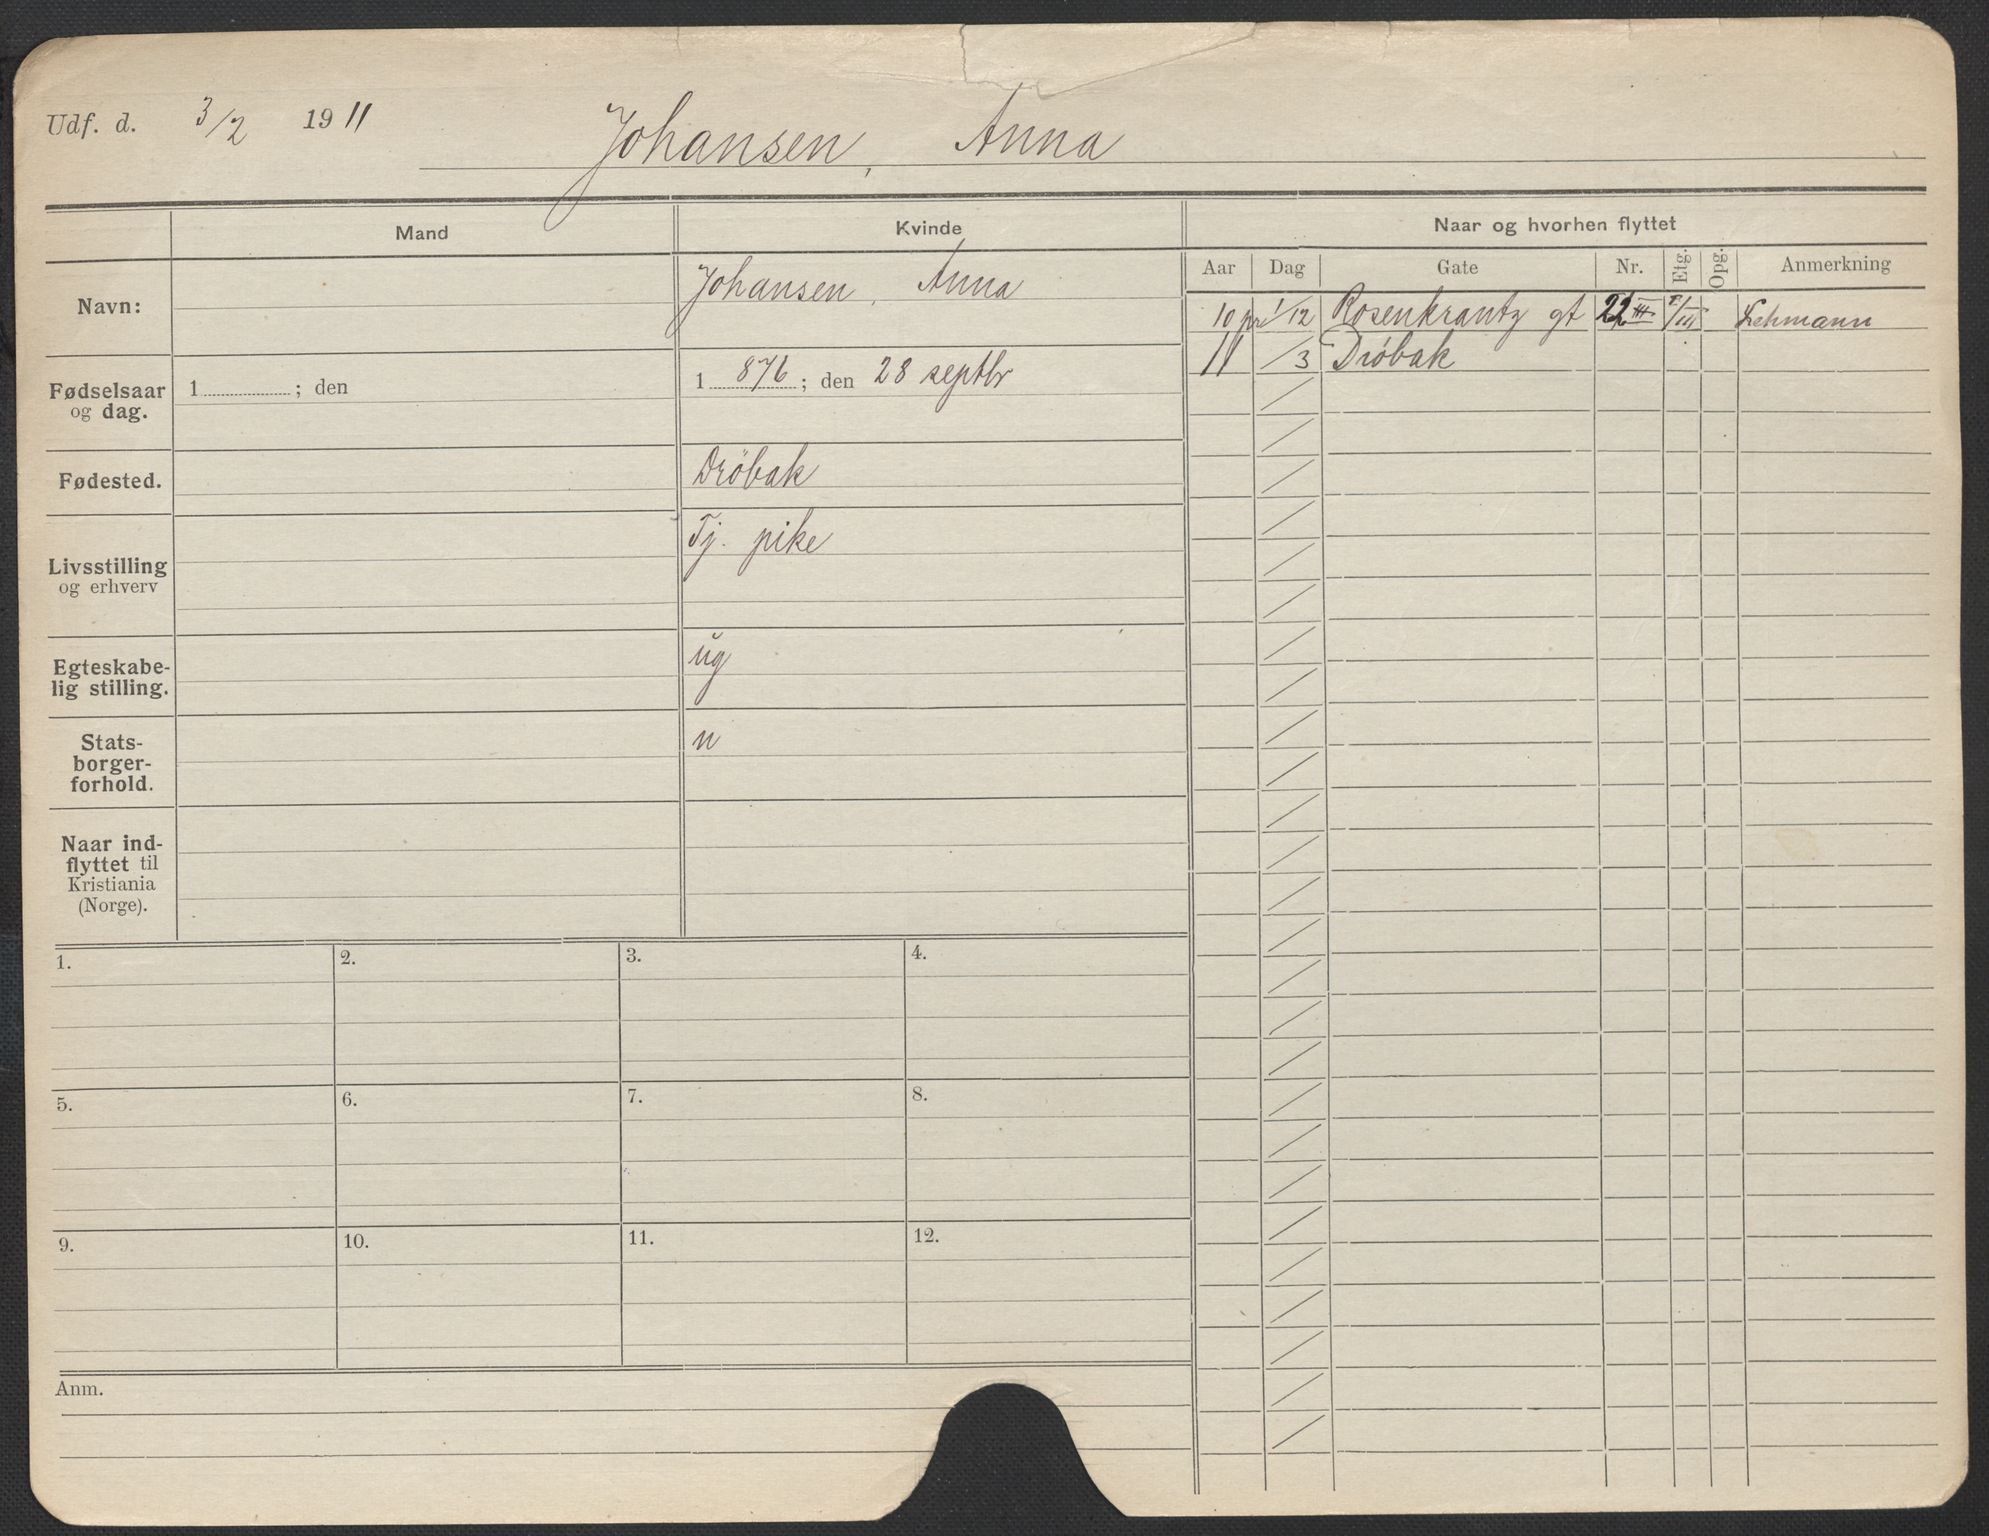 Udf. d. 3/2 1911
Johansen, Anna
Mand
Kvinde
Naar og hvorhen flyttet
Aar Dag Gate Nr. Etg. Opg. Anmerkning
Navn: Johansen, Anna
10 pr 1/12 Rosenkrantz gt 22 III Lehmann
11 /3 Dröbak
Fødselsaar og dag. 1 ; den 1 876 ; den 28 septbr
Fødested. Dröbak
Livsstilling og erhverv Tj. pike
Egteskabe-
lig stilling. ug
Stats-
borger-
forhold. n
Naar ind-
flyttet til
Kristiania
(Norge).
1. 2. 3. 4.
5. 6. 7. 8.
9. 10. 11. 12.
Anm.